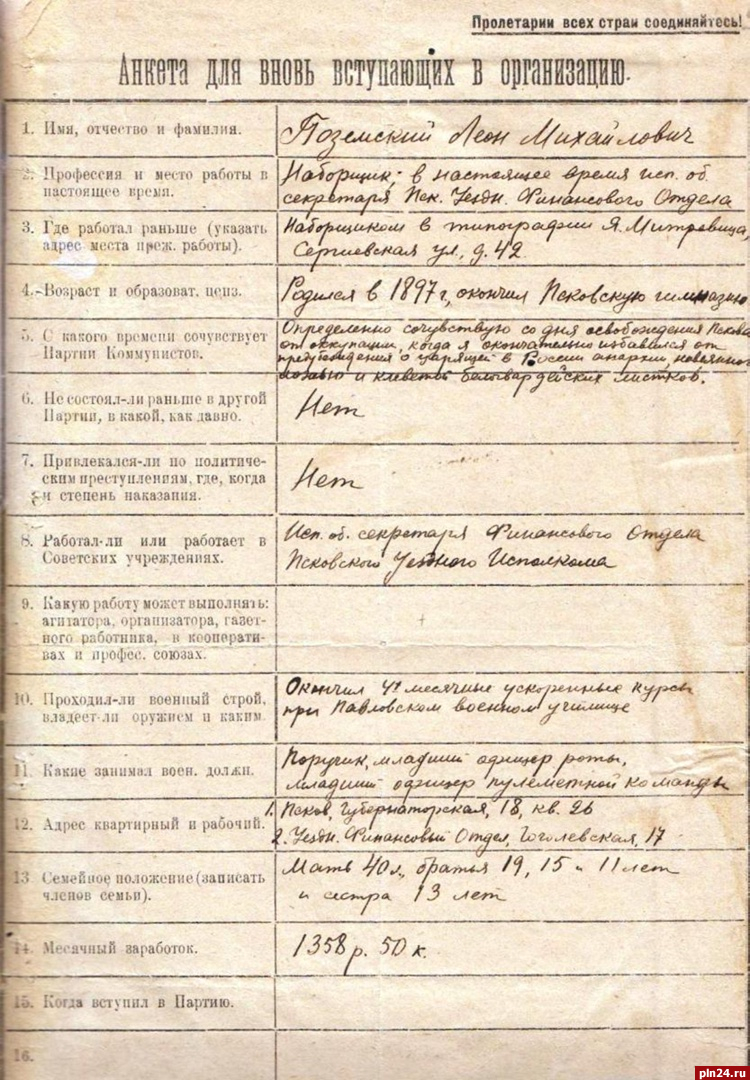 Пролетарии всех стран соединяйтесь!
Анкета для вновь вступающих в организацию.
1. Имя, отчество и фамилия.
Поземский Леон Михайлович
2. Профессия и место работы в
настоящее время.
Наборщик; в настоящее время исп. об.
секретаря Пск. Уездн. Финансового Отдела
3. Где работал раньше (указать
адрес места преж. работы).
Наборщиком в типографии Я. Митревица
Сергиевская ул., д. 42
4. Возраст и образоват. ценз.
Родился в 1897 г., окончил Псковскую гимназию
5. С какого времени сочувствует
Партии Коммунистов.
Определенно сочувствую со дня освобождения Пскова
от оккупации, когда я окончательно избавился от
предубеждения о царящей в России анархии, навеянного
ложью и клеветой белогвардейских листков.
6. Не состоял-ли раньше в другой
Партии, в какой, как давно.
Нет
7. Привлекался-ли по политиче-
ским преступлениям, где, когда
и степень наказания.
Нет
8. Работал-ли или работает в
Советских учреждениях.
Исп. об. секретаря Финансового Отдела
Псковского Уездного Исполкома
9. Какую работу может выполнять:
агитатора, организатора, газет-
ного работника, в кооперати-
вах и профес. союзах.
10. Проходил-ли военный строй,
владеет-ли оружием и каким
Окончил 4х месячные ускоренные курсы
при Павловском военном училище
11. Какие занимал воен. должн.
Поручик, младший офицер роты,
младший офицер пулеметной команды
12. Адрес квартирный и рабочий.
1. Псков, Губернаторская, 18, кв. 26
2. Уездн. Финансовый Отдел, Гоголевская, 17
13. Семейное положение (записать
членов семьи).
Мать 40 л., братья 19, 15 и 11 лет
и сестра 13 лет
14. Месячный заработок.
1358 р. 50 к.
15. Когда вступил в Партию.
16.
pln24.ru